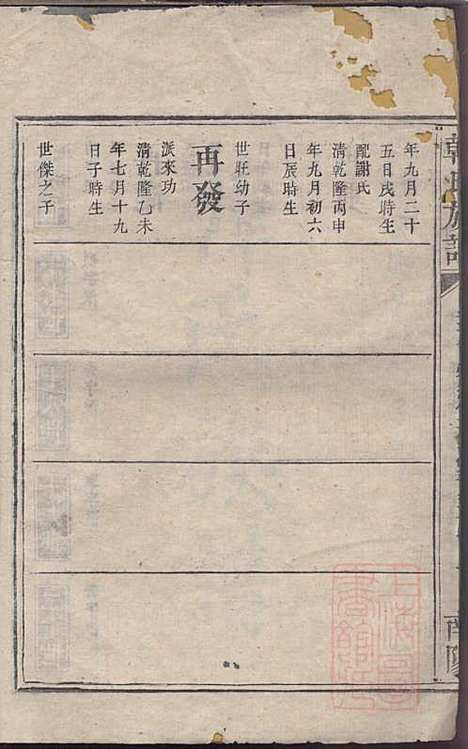 年九月二十
五日戌時生
配謝氏
清乾隆丙申
年九月初六
日辰時生
世旺幼子
再發
派來功
清乾隆乙未
年七月十九
日子時生
世傑之子